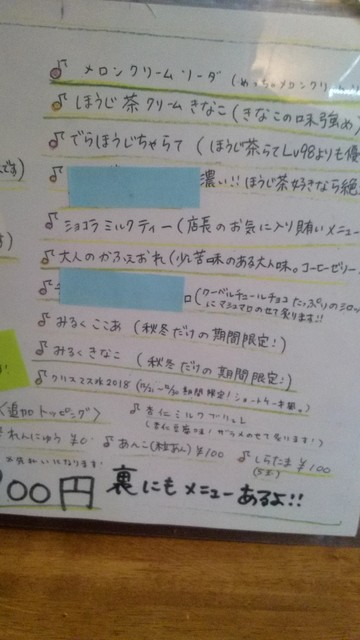 ♪ メロンクリームソーダ (めっちゃメロンクリ
♪ ほうじ茶クリームきなこ (きなこの味強め)
♪ でらほうじちゃらて (ほうじ茶らてLv98よりも優
です)
♪ 濃い!! ほうじ茶好きなら絶
す)
♪ ショコラミルクティー (店長のお気に入り賄いメニュー
♪ 大人のかふぇおれ (少し苦味のある大人味。コーヒーゼリー
♪ (クーベルチュールチョコたっぷりの
にマシュマロのせて炙ります!!
♪ みるくここあ (秋冬だけの期間限定!)
♪ みるくきなこ (秋冬だけの期間限定!)
♪ クリスマス 2018 (期間限定!ショートケーキ風。)
<追加トッピング>
♪ 杏仁ミルクブリュレ
(杏仁豆腐味! のせて炙ります!)
れんにゅう ¥0 ♪ あんこ(粒あん) ¥100 ♪ しらたま ¥100
(5玉)
になります
00円 裏にもメニューあるよ!!